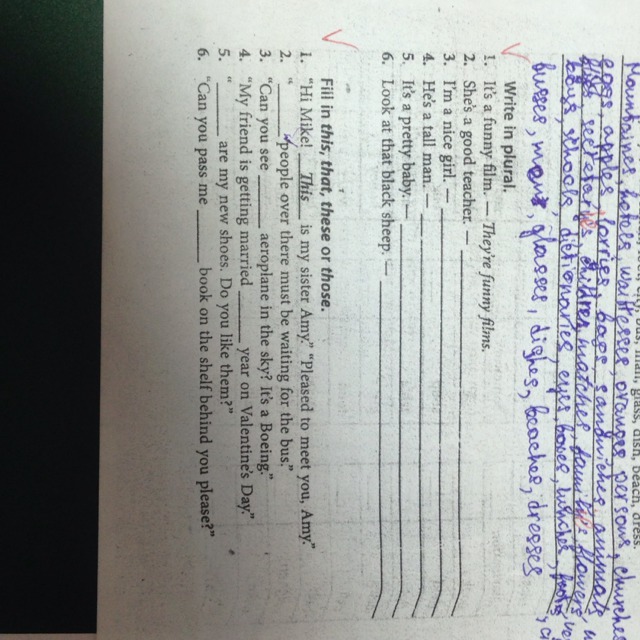 glass, dish, beach, dress.
waitresses, oranges, persons, churches
eggs, apples, lorries, boys, sandwiches,
matches, families, flowers
boys, schools, dictionaries, eyes, boxes,
busses, glasses, dishes, beaches, dresses
Write in plural.
1. It's a funny film. — They're funny films.
2. She's a good teacher. —
3. I'm a nice girl. —
4. He's a tall man. —
5. It's a pretty baby. —
6. Look at that black sheep. —
Fill in this, that, these or those.
1. "Hi Mike! This is my sister Amy." "Pleased to meet you, Amy."
2. "______ people over there must be waiting for the bus."
3. "Can you see ______ aeroplane in the sky? It's a Boeing."
4. "My friend is getting married ______ year on Valentine's Day."
5. "______ are my new shoes. Do you like them?"
6. "Can you pass me ______ book on the shelf behind you please?"